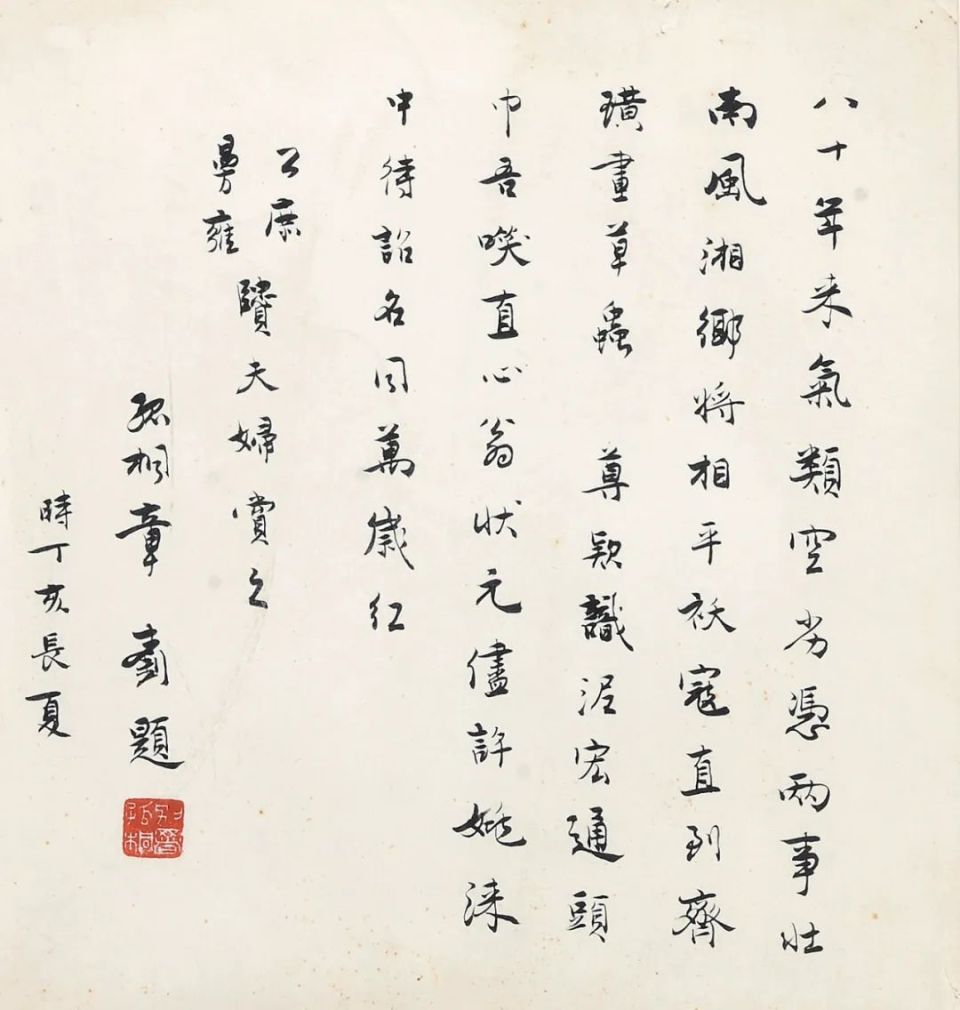 八十年来氣類空劣憑兩事壯
南風湘鄉将相平袄寇直到齊
璜畫草蟲 尊款識泥宏通頭
巾吾直心翁状元儘許姚淶
中待詔名同萬歲红
公庶
曼雍
賢夫婦賞之
孤桐章釗題
時丁亥長夏
孤桐